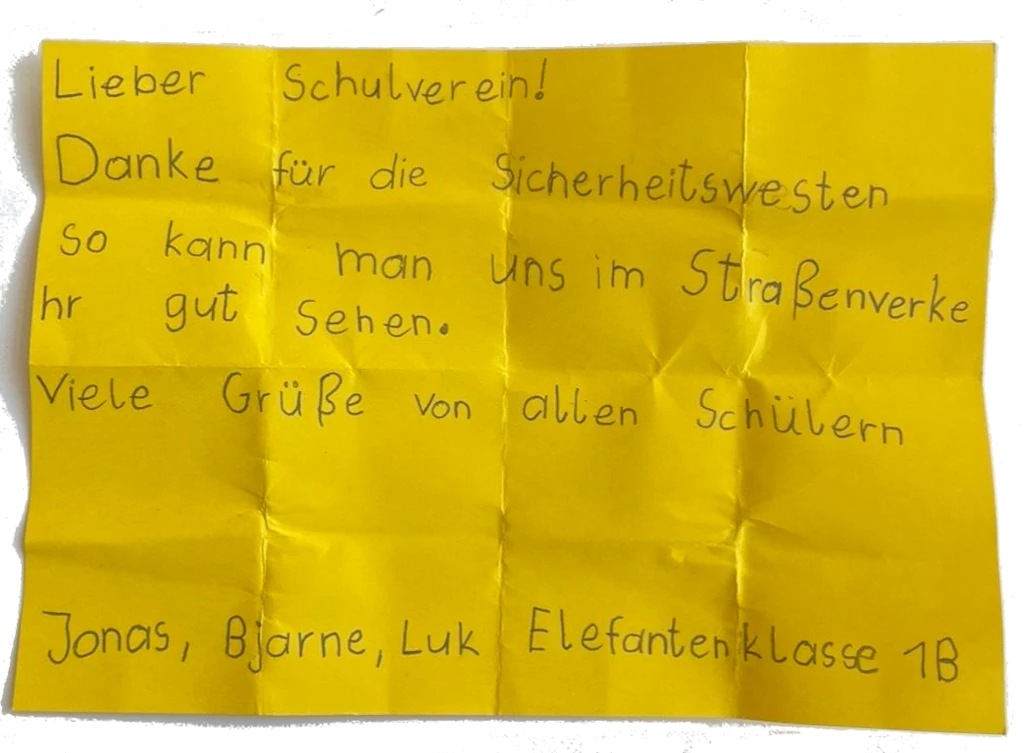 Lieber Schulverein!
Danke für die Sicherheitswesten
so kann man uns im Straßenverke
hr gut Sehen.
Viele Grüße von allen Schülern
Jonas, Bjarne, Luk Elefantenklasse 1B